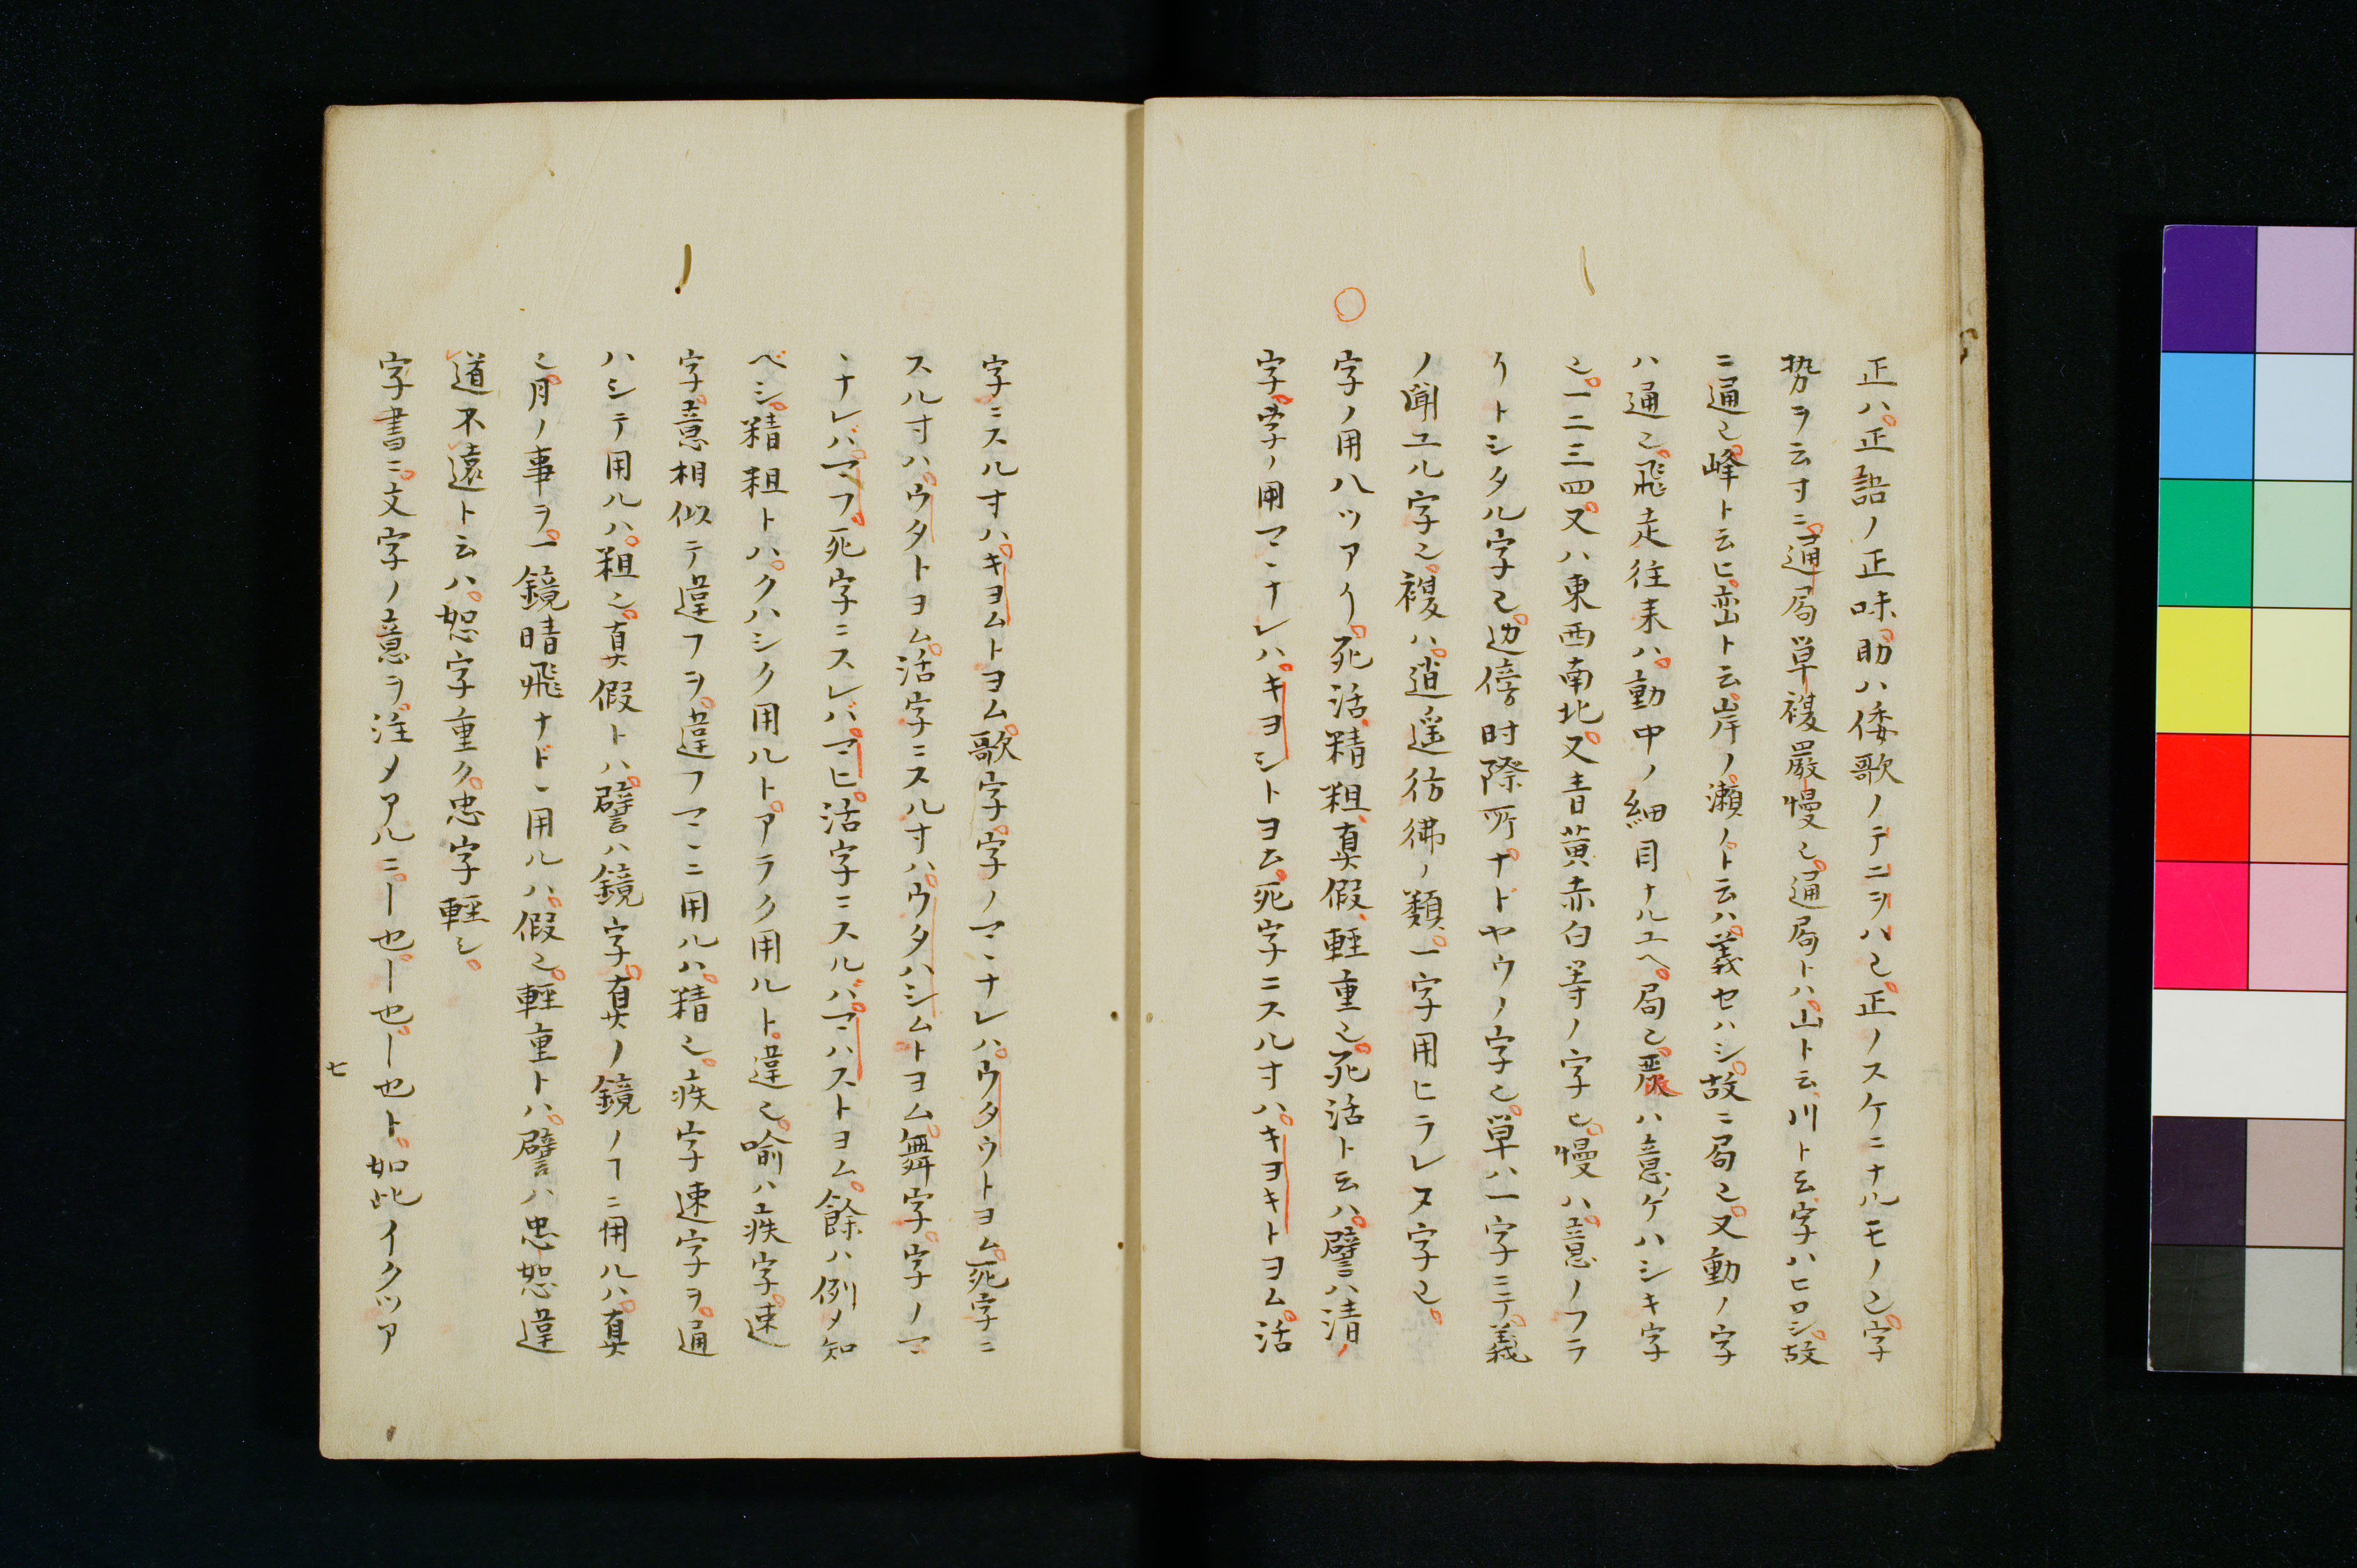 正ハ。正語ノ正味。助ハ倭歌ノテニヲハ也。正ノスケニナルモノ也。字
勢ヲ云寸ニ。通局单複嚴慢也。通局トハ。山ト云、川ト云字ハヒロシ。故
ニ通也。峰ト云ヒ。巒ト云。岸ノ瀬ノト云ハ。義セハシ。故ニ局也。又動ノ字
ハ通也。飛走往来ハ。動中ノ細目ナルユヘ。局也。嚴ハ意ゲハシキ字
也。一二三四。又ハ東西南北。又青黄赤白等ノ字也。慢ハ。意ノフラ
リトシタル字也。边傍时際所ナドヤウノ字也。单ハ一字ニテ。義
ノ聞ユル字也。複ハ。逍遥彷彿ノ類。一字用ヒラレヌ字也。
字ノ用ハツアリ。死活、精粗、真假、軽重也。死活ト云ハ。譬ハ清ノ
字。字ノ用マヽナレハ。キヨシトヨム。死字ニスル寸ハ。キヨキトヨム。活
字ニスル寸ハ。キヨムトヨム。歌字。字ノマヽナレハ。ウタウトヨム。死字ニ
スル寸ハ。ウタトヨム。活字ニスル寸ハ。ウタハシムトヨム。舞字。字ノマ
ヽナレバ。マフ。死字ニスレバ。マヒ。活字ニスルバ。マハストヨム。餘ハ例メ知
ベシ。精粗トハ。クハシク用ルト。アラク用ルト。違也。喻ハ疾字。速
字。意相似テ違フヲ。違フマヽニ用ルハ。精也。疾字速字ヲ。通
ハシテ用ルハ。粗也。真假トハ。譬ハ鏡字。真ノ鏡ノヿニ用ルハ。真
也。月ノ事ヲ。一鏡晴飛ナドヽ用ルハ。假也。軽重トハ。譬ハ忠恕違
道不遠ト云ハ。恕字重ク。忠字軽シ。
字書ニ。文字ノ意ヲ。注メアルニ。ー也。ー也。ー也ト。如此イクツア
七